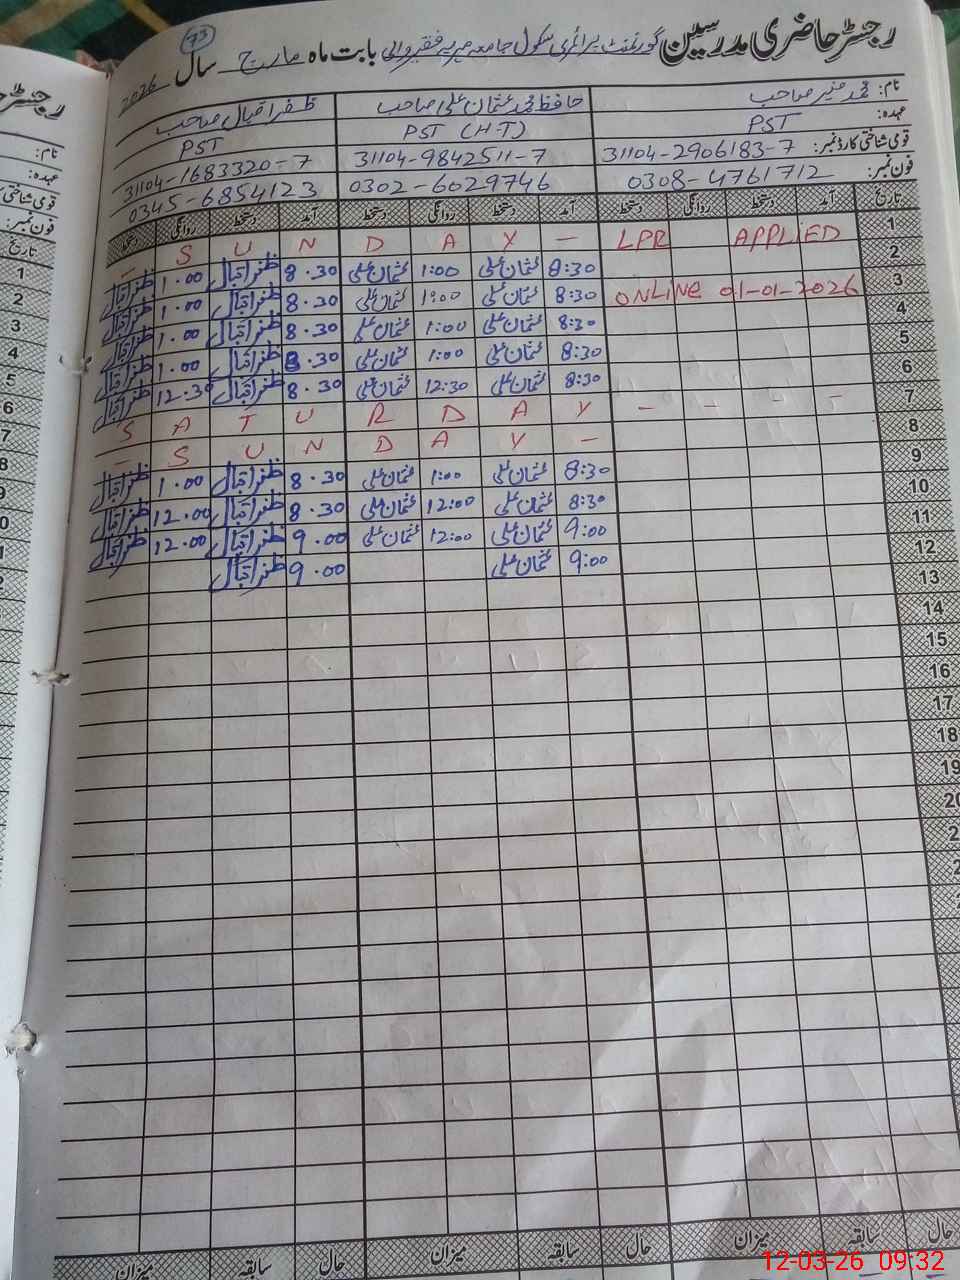 رجسٹر حاضری مدرسین گورنمنٹ پرائمری سکول جامعہ مہریہ فقیر والی بابت ماہ مارچ سال 2026
73
نام: محمد منیر صاحب حافظ محمد عثمان علی صاحب ظفر اقبال صاحب
عہدہ: PST PST (H.T) PST
قومی شناختی کارڈ نمبر: 31104-2906183-7 31104-9842511-7 31104-1683320-7
فون نمبر: 0308-4761712 0302-6029746 0345-6854123
تاریخ آمد دستخط روانگی دستخط آمد دستخط روانگی دستخط آمد دستخط روانگی دستخط
1 LPR APPLIED — S U N D A Y —
2 8:30 عثمان علی 1:00 عثمان علی 8.30 ظفر اقبال 1.00 ظفر اقبال
3 ONLINE 01-01-2026 8:30 عثمان علی 1:00 عثمان علی 8.30 ظفر اقبال 1.00 ظفر اقبال
4 8:30 عثمان علی 1:00 عثمان علی 8.30 ظفر اقبال 1.00 ظفر اقبال
5 8:30 عثمان علی 1:00 عثمان علی 8.30 ظفر اقبال 1.00 ظفر اقبال
6 8:30 عثمان علی 12:30 عثمان علی 8.30 ظفر اقبال 12.30 ظفر اقبال
7 S A T U R D A Y - - - -
8 — S U N D A Y —
9 8:30 عثمان علی 1:00 عثمان علی 8.30 ظفر اقبال 1.00 ظفر اقبال
10 8:30 عثمان علی 12:00 عثمان علی 8.30 ظفر اقبال 12.00 ظفر اقبال
11 9:00 عثمان علی 12:00 عثمان علی 9.00 ظفر اقبال 12.00 ظفر اقبال
12 9:00 عثمان علی 9.00 ظفر اقبال
13
14
15
16
17
18
19
20
حال سابقہ میزان حال سابقہ میزان حال سابقہ میزان
رجسٹر
نام:
عہدہ:
قومی شناختی
فون نمبر:
تاریخ
1
2
3
4
5
6
7
8
9
12-03-26 09:32